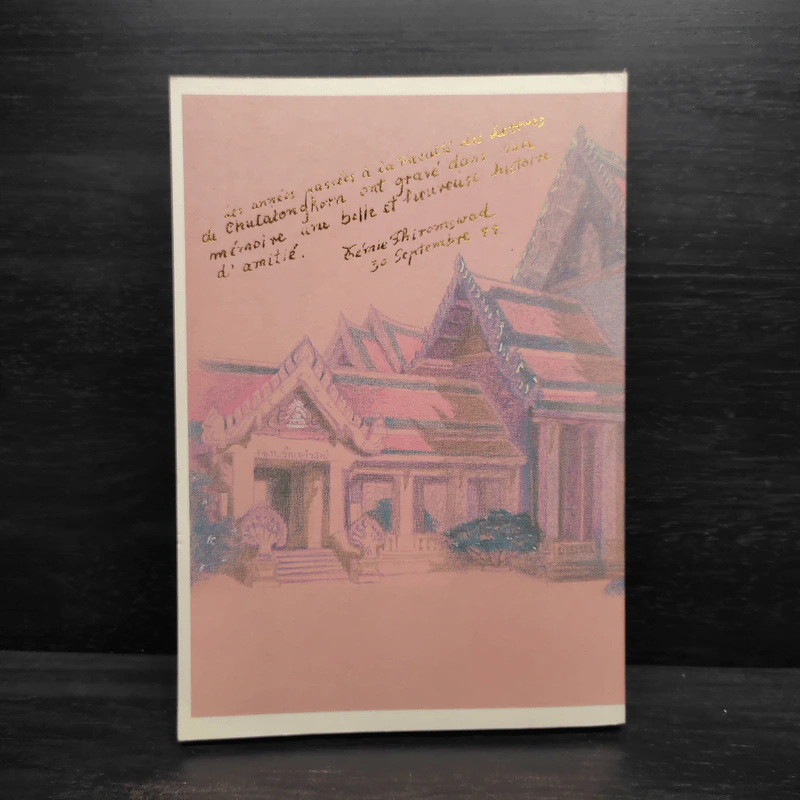 Les années passées à la Faculté des Lettres
de Chulalongkorn ont gravé dans ma
mémoire une belle et heureuse histoire
d'amitié.
Thiromswad
30 Septembre